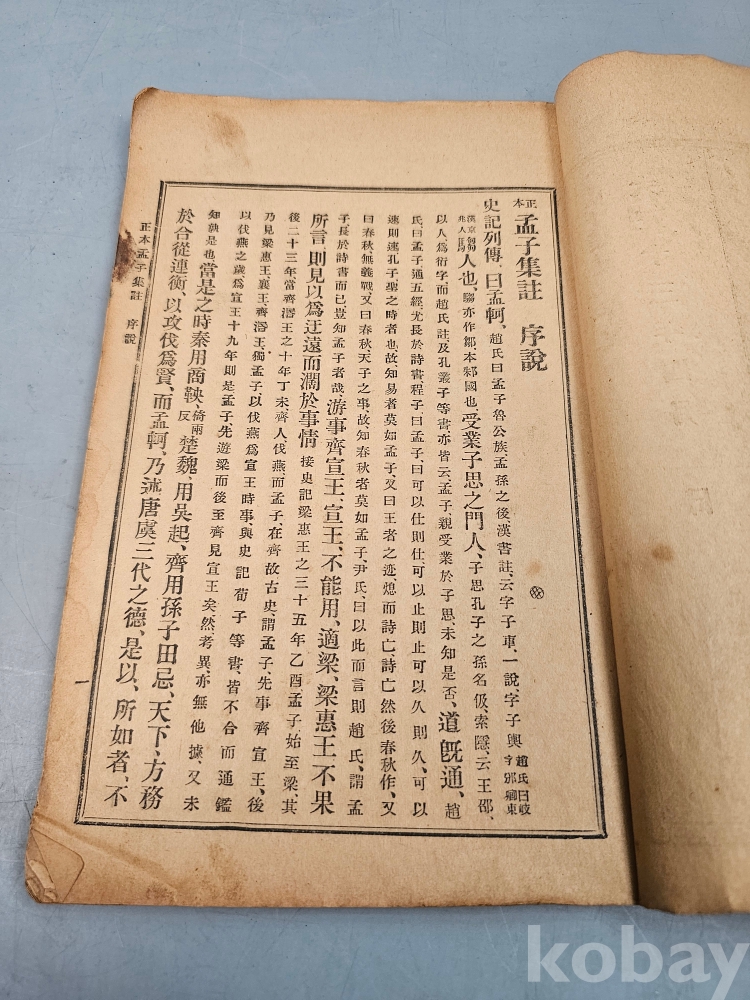 正本 孟子集註 序說
史記列傳、曰孟軻、趙氏曰孟子魯公族孟孫之後漢書註、云字子車、一說、字子輿 趙氏曰岐字邠卿東
漢京兆人 人也、騶亦作鄒本邾國也 受業子思之門人、子思孔子之孫名伋、索隱、云王邵、
以人爲衍字而趙氏註、及孔叢子等書亦皆云、孟子、親受業於子思、未知是否、道旣通、趙
氏曰孟子通五經尤長於詩書程子曰孟子曰可以仕則仕、可以止則止可以久則久、可以
速則速孔子聖之時者也故知易者莫如孟子又曰王者之迹熄而詩亡、詩亡然後春秋作、又
曰春秋無義戰又曰春秋天子之事、故、知春秋者莫如孟子尹氏、曰以此而言則趙氏、謂孟
子長於詩書而已豈知孟子者哉、游事齊宣王、宣王、不能用、適梁、梁惠王不果
所言、則見以爲迂遠而濶於事情 按史記梁惠王之三十五年乙酉、孟子、始至梁、其
後二十三年當齊湣王之十年丁未、齊人伐燕、而孟子、在齊故古史、謂孟子、先事齊宣王、後
乃見梁惠王、襄王、齊湣王、獨孟子、以伐燕爲宣王時事、與史記荀子等書、皆不合而通鑑
以伐燕之歲、爲宣王十九年則是孟子、先遊梁而後至齊見宣王矣、然考異、亦無他據、又未
知孰是也 當是之時秦用商鞅、倚兩反 楚魏、用吳起、齊用孫子田忌、天下、方務
於合從連衡、以攻伐爲賢、而孟軻、乃述唐虞三代之德、是以、所如者、不
正本孟子集註 序說
一
kobay